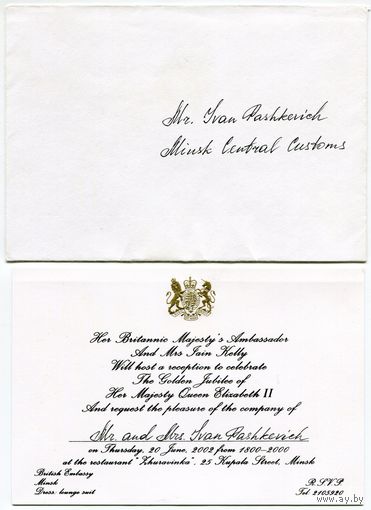 Mr. Ivan Pashkevich
Minsk Central Customs
Her Britannic Majesty's Ambassador
And Mrs Iain Kelly
Will host a reception to celebrate
The Golden Jubilee of
Her Majesty Queen Elizabeth II
And request the pleasure of the company of
Mr. and Mrs. Ivan Pashkevich
on Thursday, 20 June, 2002 from 1800-2000
at the restaurant "Zhuravinka", 25 Kupala Street, Minsk
British Embassy
Minsk
Dress: lounge suit
R.S.V.P
Tel. 2105920
www.ay.by